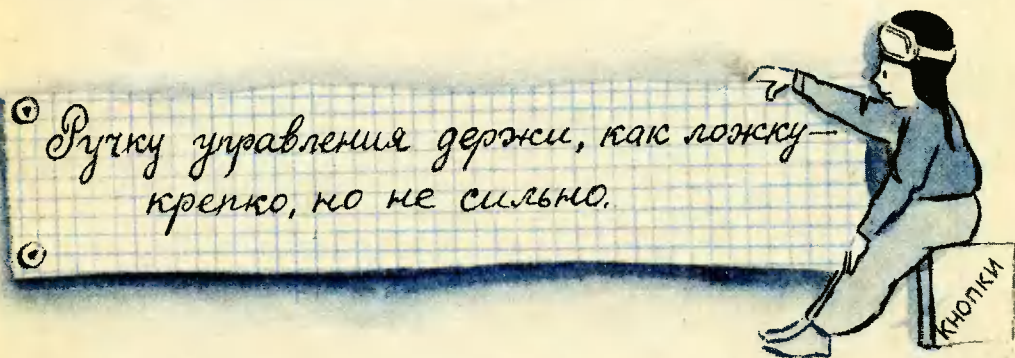 Ручку управления держи, как ложку—
крепко, но не сильно.
КНОПКИ